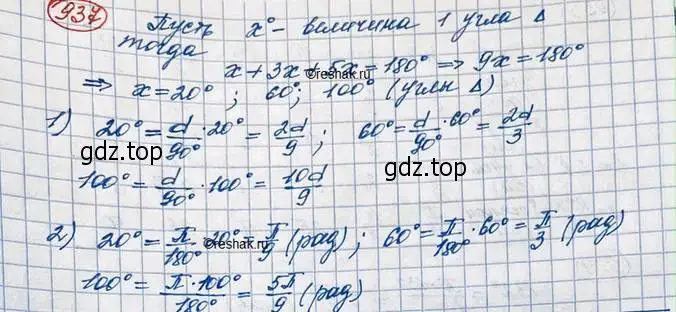 937
Пусть x° - величина 1 угла Δ
тогда
x + 3x + 5x = 180° => 9x = 180°
©reshak.ru
=> x = 20° ; 60° ; 100° (углы Δ)
1) 20° = d/90° · 20° = 2d/9 ; 60° = d/90° · 60° = 2d/3
gdz.top gdz.top
100° = d/90° · 100° = 10d/9
2) 20° = π/180° · 20° = π/9 (рад) ; 60° = π/180° · 60° = π/3 (рад)
©reshak.ru
100° = π · 100°/180° = 5π/9 (рад)